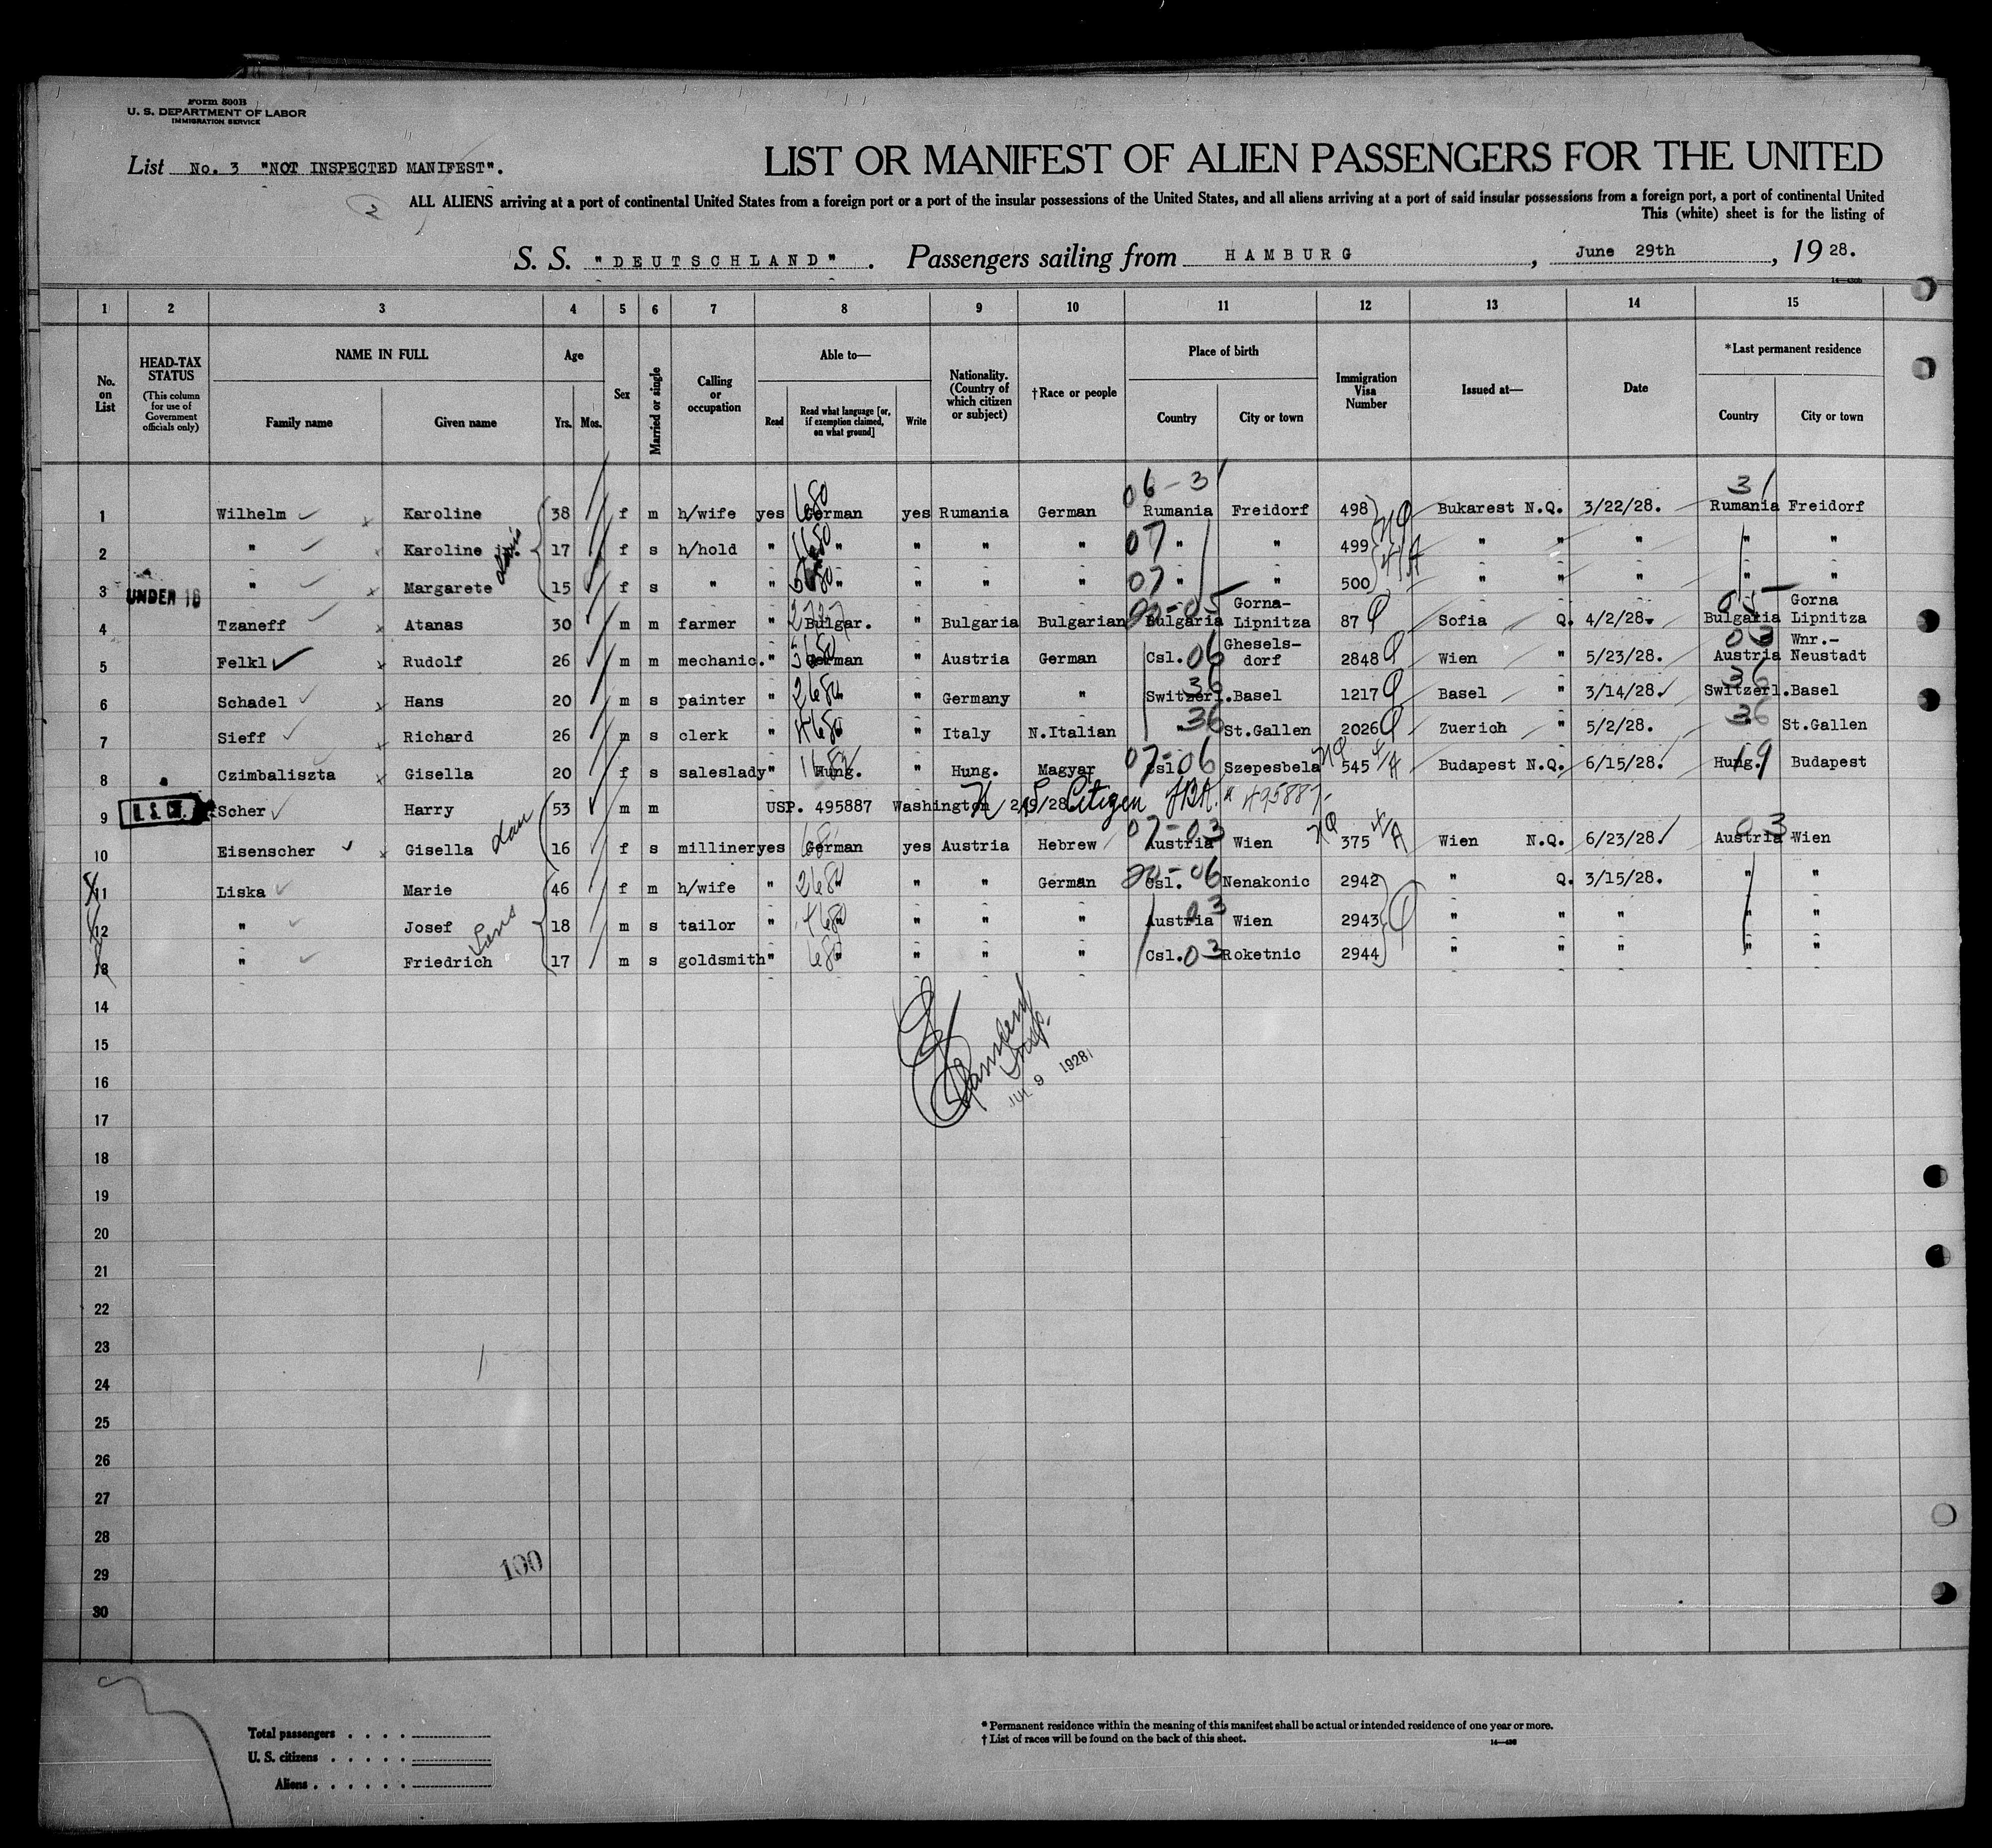 Form 500B
U. S. DEPARTMENT OF LABOR
IMMIGRATION SERVICE
List No. 3 "NOT INSPECTED MANIFEST".
LIST OR MANIFEST OF ALIEN PASSENGERS FOR THE UNITED
2
ALL ALIENS arriving at a port of continental United States from a foreign port or a port of the insular possessions of the United States, and all aliens arriving at a port of said insular possessions from a foreign port, a port of continental United
This (white) sheet is for the listing of
S. S. "DEUTSCHLAND". Passengers sailing from HAMBURG, June 29th, 1928.
1 2 3 4 5 6 7 8 9 10 11 12 13 14 15
No. on List
HEAD-TAX STATUS (This column for use of Government officials only)
NAME IN FULL Family name Given name
Age Yrs. Mos.
Sex
Married or single
Calling or occupation
Able to— Read Read what language [or, if exemption claimed, on what ground] Write
Nationality. (Country of which citizen or subject)
†Race or people
Place of birth Country City or town
Immigration Visa Number
Issued at—
Date
*Last permanent residence Country City or town
06-3 3
1 Wilhelm Karoline 38 f m h/wife yes 680 German yes Rumania German Rumania Freidorf 498 NQ Bukarest N.Q. 3/22/28. Rumania Freidorf
2 " Karoline jr. 17 f s h/hold " " " " " 07 " " 499 4/A " " " " "
3 UNDER 16 " Margarete 15 f s " " " " " " 07 " " 500 " " " " "
4 Tzaneff Atanas 30 m m farmer " Bulgar. " Bulgaria Bulgarian Bulgaria Gorna-Lipnitza 87 Q Sofia Q. 4/2/28. 05 Bulgaria Gorna Lipnitza
5 Felkl Rudolf 26 m m mechanic. " German " Austria German Csl. 06 Ghesels-dorf 2848 Q Wien " 5/23/28. 03 Austria Wnr.-Neustadt
6 Schadel Hans 20 m s painter " 2680 " " Germany " 36 Switzerl. Basel 1217 Q Basel " 3/14/28. 36 Switzerl. Basel
7 Sieff Richard 26 m s clerk " 4680 " " Italy N.Italian " 36 St.Gallen 2026 Q Zuerich " 5/2/28. " 36 St.Gallen
8 Czimbaliszta Gisella 20 f s saleslady " Hung. " Hung. Magyar 07-06 Csl. Szepesbela NQ 545 4/A Budapest N.Q. 6/15/28. Hung. 19 Budapest
9 U. S. Scher Harry 53 m m USP. 495887 Washington 2/9/28 U S Citizen # 495887-
10 Eisenscher Gisella 16 f s milliner yes 680 German yes Austria Hebrew 07-03 Austria Wien NQ 375 4/A Wien N.Q. 6/23/28. 03 Austria Wien
11 Liska Marie 46 f m h/wife " 2680 " " " German 06 Csl. Nenakonic 2942 " Q. 3/15/28. " "
12 " Josef 18 m s tailor " 4680 " " " " 03 Austria Wien 2943 Q " " " " "
Sons
13 " Friedrich 17 m s goldsmith " 680 " " " " Csl. 03 Roketnic 2944 " " " " "
14
JUL 9 1928
15
16
17
18
19
20
21
22
23
24
25
26
27
28
29
100
30
Total passengers
U. S. citizens
Aliens
* Permanent residence within the meaning of this manifest shall be actual or intended residence of one year or more.
† List of races will be found on the back of this sheet.